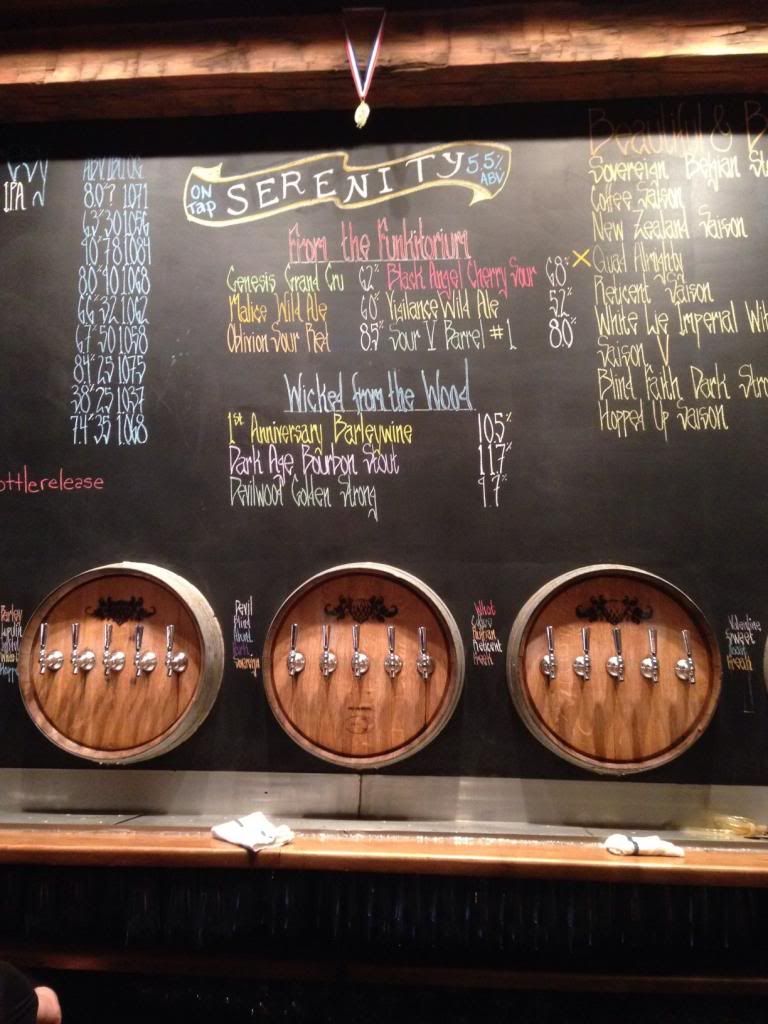 IPA
ABV IBU OG
8.0% ? 1.071
6.3% 30 1.056
9.0% 78 1.084
8.0% 90 1.068
6.6% 32 1.062
6.7% 50 1.058
8.4% 25 1.075
3.8% 25 1.037
7.4% 35 1.068
ottlerelease
ON Tap SERENITY 5.5% ABV
From the Funkitorium
Genesis Grand Cru 6.2% Black Angel Cherry Sour 6.8%
Malice Wild Ale 6.0% Vigilance Wild Ale 5.2%
Oblivion Sour Red 8.5% Sour V Barrel #1 8.0%
Wicked from the Wood
1st Anniversary Barleywine 10.5%
Dark Age Bourbon Stout 11.7%
Devilwood Golden Strong 9.7%
Beautiful & B
Sovereign Belgian St
Coffee Saison
New Zealand Saison
X Quad Almighty
Reticent Saison
White Lie Imperial Wit
Saison V
Blind Faith Dark Stro
Hopped Up Saison
Barley
Lupulin
Hopped
Devil
Blind
Dark
Sovereign
What
Coffee
Human
Reticent
Freek
Valentine
Sweet
Freek